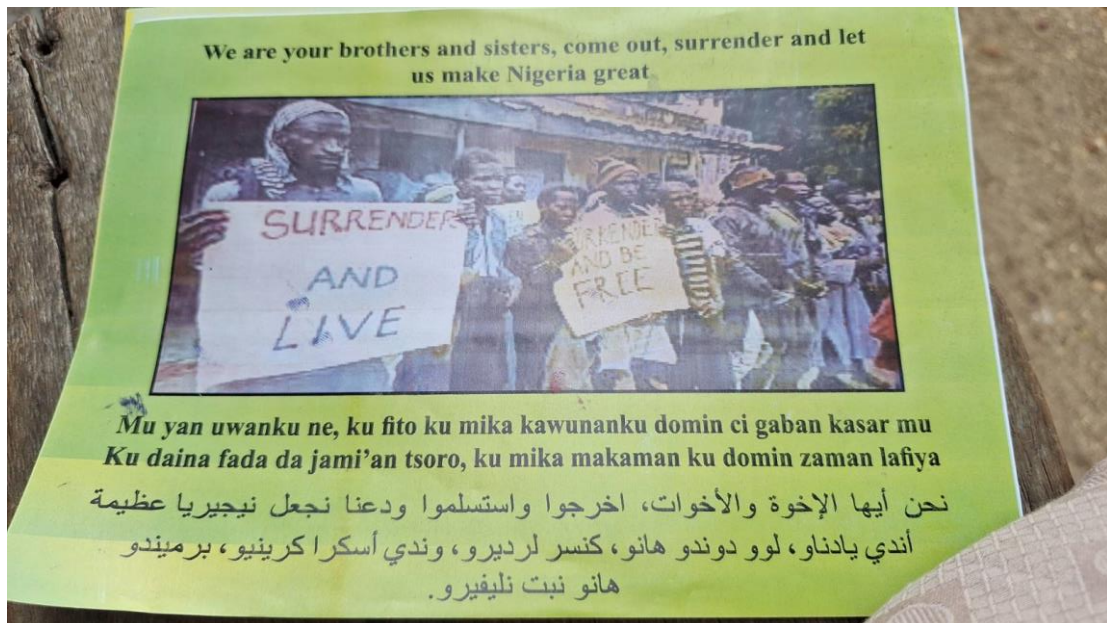 We are your brothers and sisters, come out, surrender and let
us make Nigeria great
SURRENDER
AND
LIVE
SURRENDER
AND BE
FREE
Mu yan uwanku ne, ku fito ku mika kawunanku domin ci gaban kasar mu
Ku daina fada da jami'an tsoro, ku mika makaman ku domin zaman lafiya
نحن أيها الإخوة والأخوات، اخرجوا واستسلموا ودعنا نجعل نيجيريا عظيمة
أندي يادناو، لوو دوندو هانو، كنسر لرديرو، وندي أسكرا كرينيو، برميندو
هانو نبت نليفيرو.